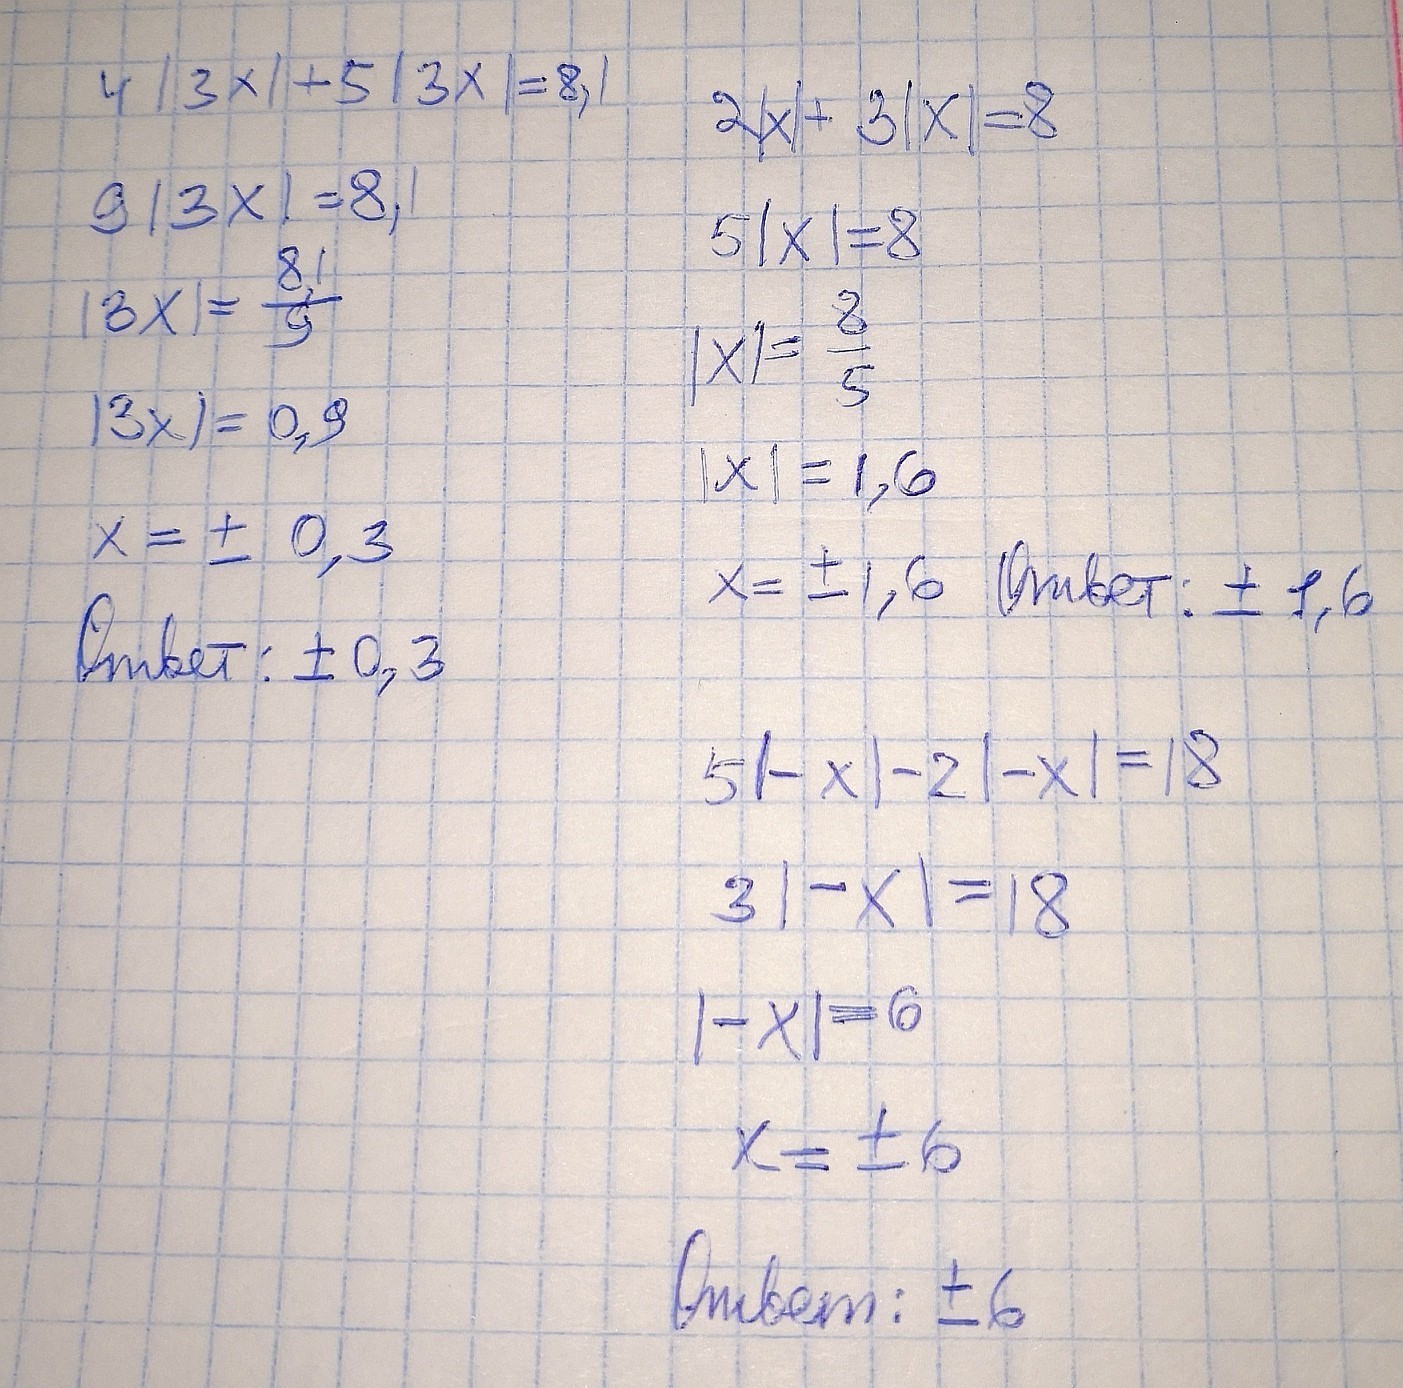 4|3x|+5|3x|=8,1
9|3x|=8,1
|3x|=8,1/9
|3x|=0,9
x=± 0,3
Ответ: ±0,3
2|x|+3|x|=8
5|x|=8
|x|=8/5
|x|=1,6
x=±1,6 Ответ: ±1,6
5|-x|-2|-x|=18
3|-x|=18
|-x|=6
x=±6
Ответ: ±6